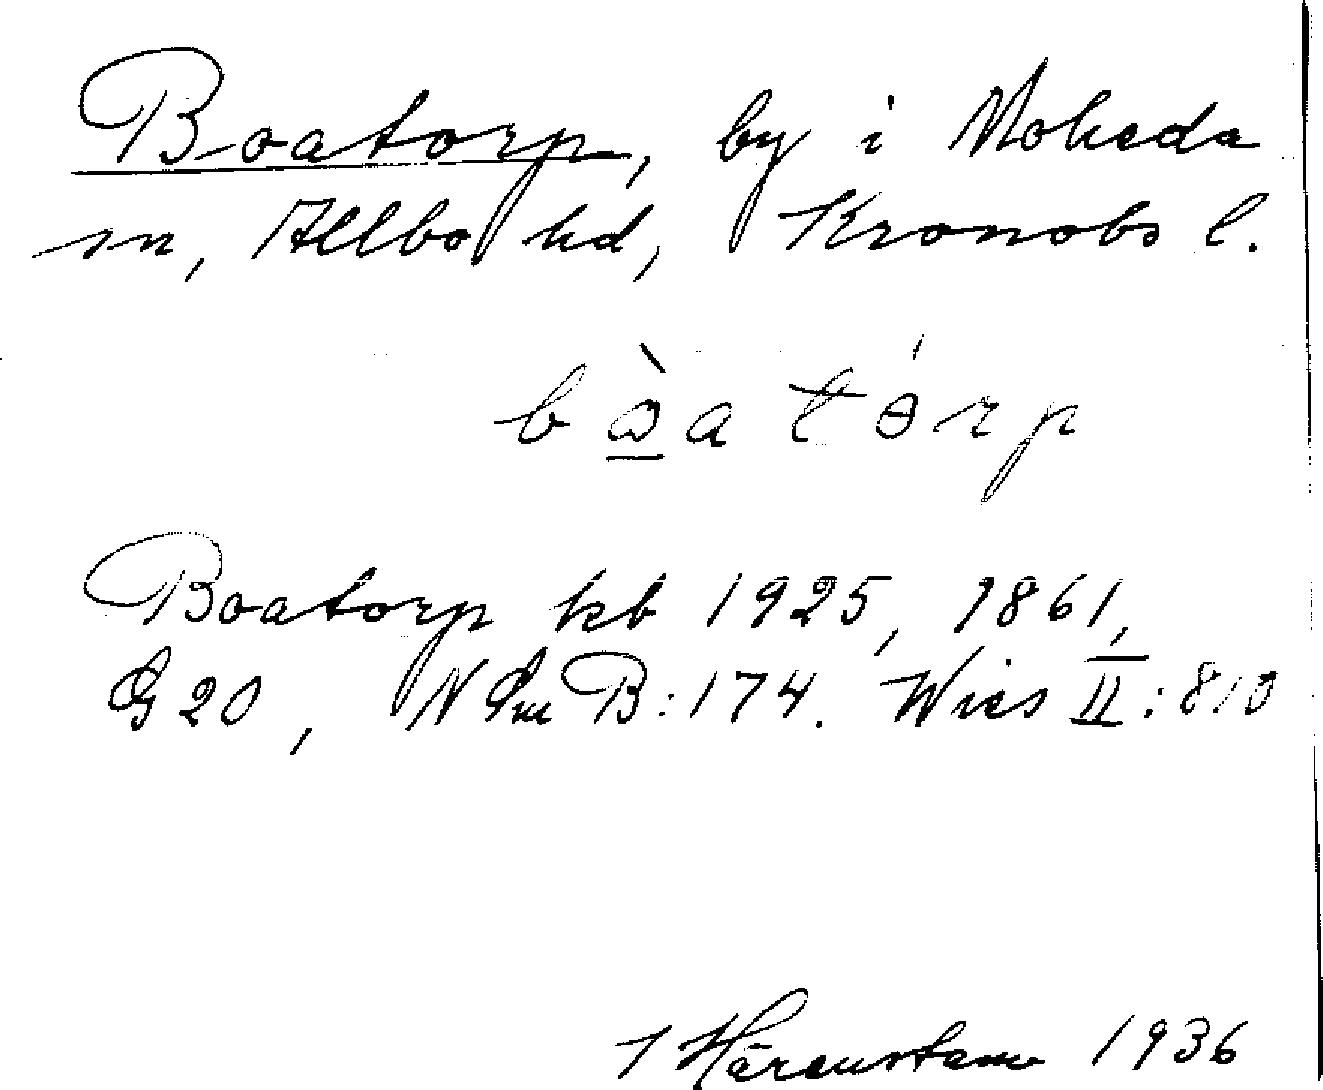 Boatorp, by i Moheda
sn, Allbo hd, Kronobs l.
bɷ̀a tɵ́rp
Boatorp kb 1925, 1861,
G 20, N Sm B:174. Wies II:810
J Härenstam 1936